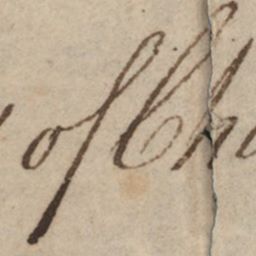 of Ch